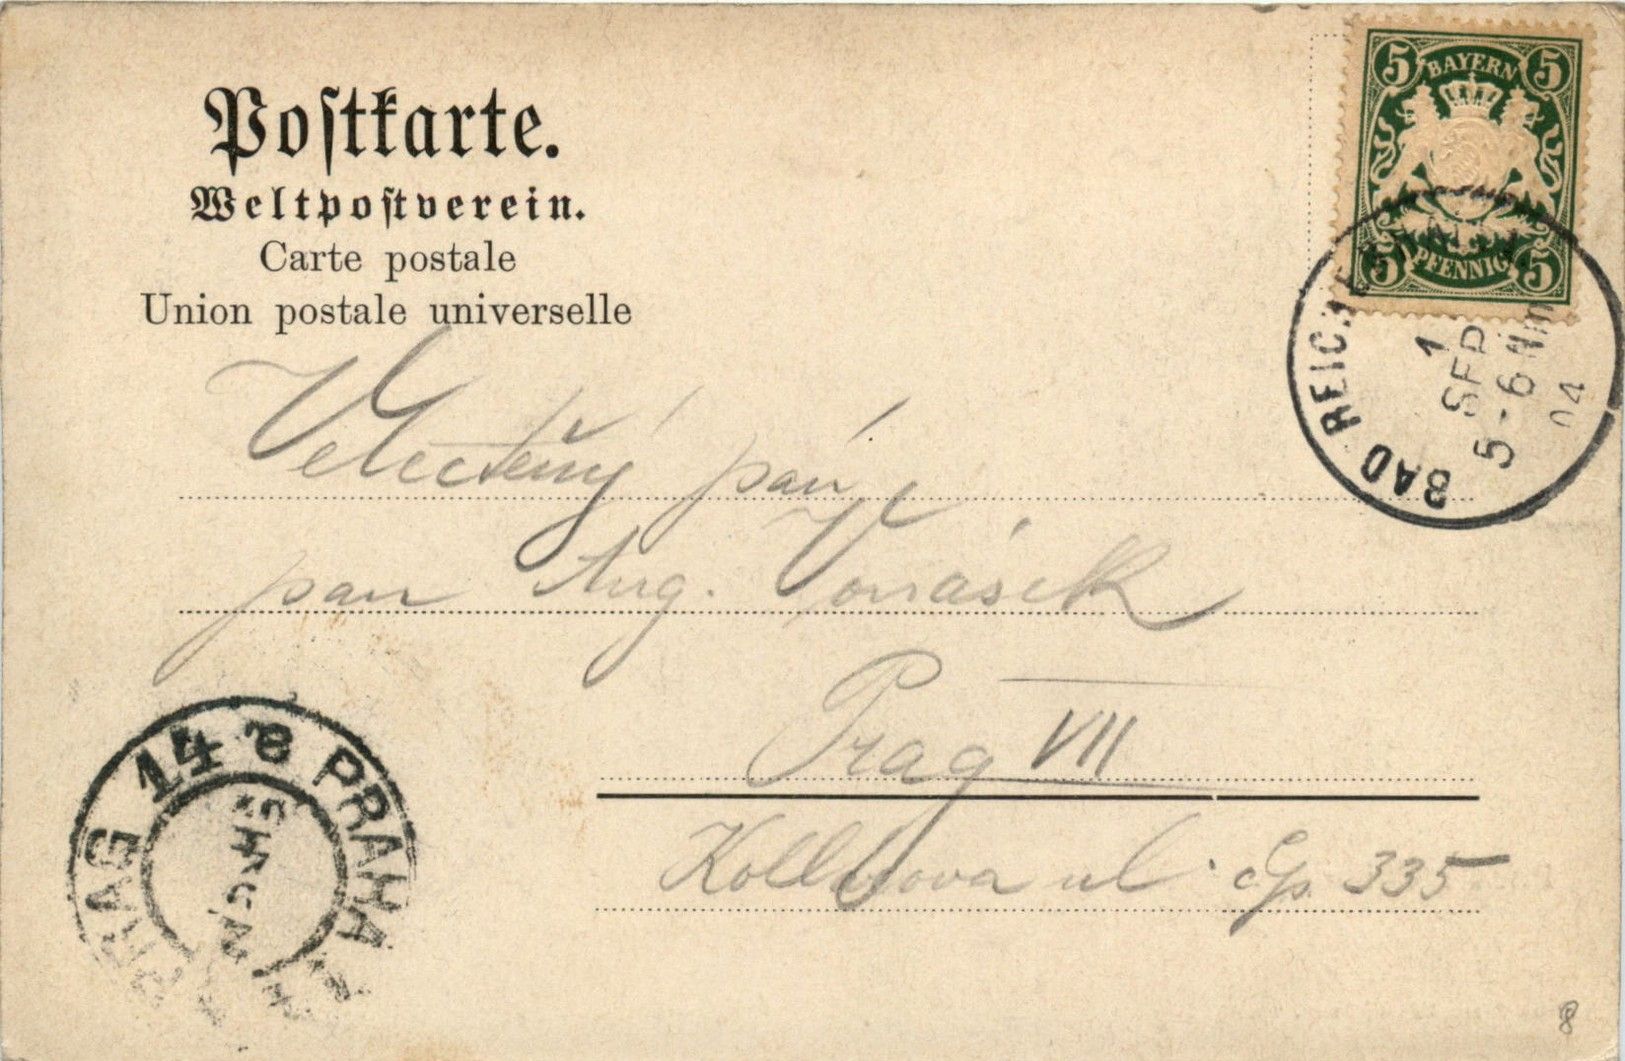 Postkarte.
Weltpostverein.
Carte postale
Union postale universelle
5 BAYERN 5
5 PFENNIG 5
BAD REICHE
1
SEP
5-6 Nm
04
Velectěný pán
pan Aug. Vonásek
Prag VII
Kollárova ul. čp. 335
PRAG 14 PRAHA
8